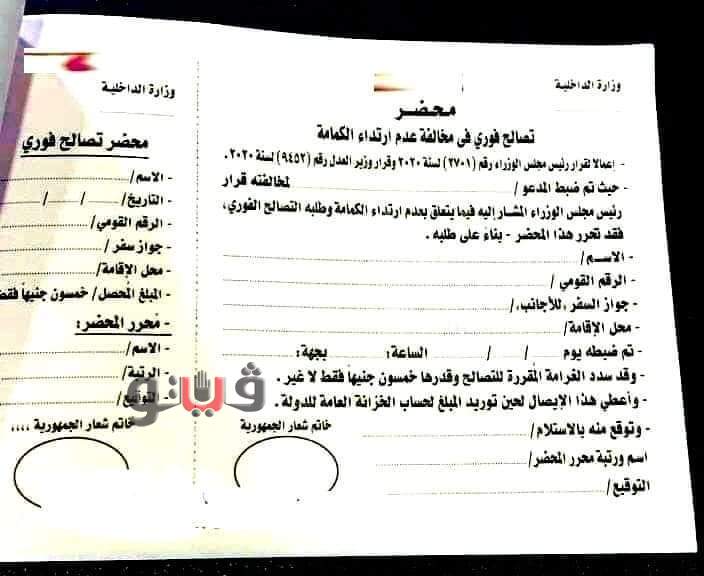 وزارة الداخلية
محضر
تصالح فوري في مخالفة عدم ارتداء الكمامة
- إعمالا لقرار رئيس مجلس الوزراء رقم (٢٧٠١) لسنة ٢٠٢٠ وقرار وزير العدل رقم (٩٤٥٢) لسنة ٢٠٢٠.
- حيث تم ضبط المدعو / لمخالفته قرار
رئيس مجلس الوزراء المشار إليه فيما يتعلق بعدم ارتداء الكمامة وطلبه التصالح الفوري،
فقد تحرر هذا المحضر - بناءً على طلبه .
- الاسم/
- الرقم القومي /
- جواز السفر «للأجانب»/
- محل الإقامة/
- تم ضبطه يوم / / الساعة: بجهة:
- وقد سدد الغرامة المقررة للتصالح وقدرها خمسون جنيهاً فقط لا غير .
- وأعطي هذا الإيصال لحين توريد المبلغ لحساب الخزانة العامة للدولة .
- وتوقع منه بالاستلام/
خاتم شعار الجمهورية
اسم ورتبة محرر المحضر/
التوقيع/
وزارة الداخلية
محضر تصالح فوري
- الاسم/
- التاريخ/ / /
- الرقم القومي/
- جواز سفر /
- محل الإقامة/
- المبلغ المُحصل/ خمسون جنيهاً فقط
- مُحرر المحضر:
- الاسم/
- الرتبة/
- التوقيع/
خاتم شعار الجمهورية ....
ڤيتو